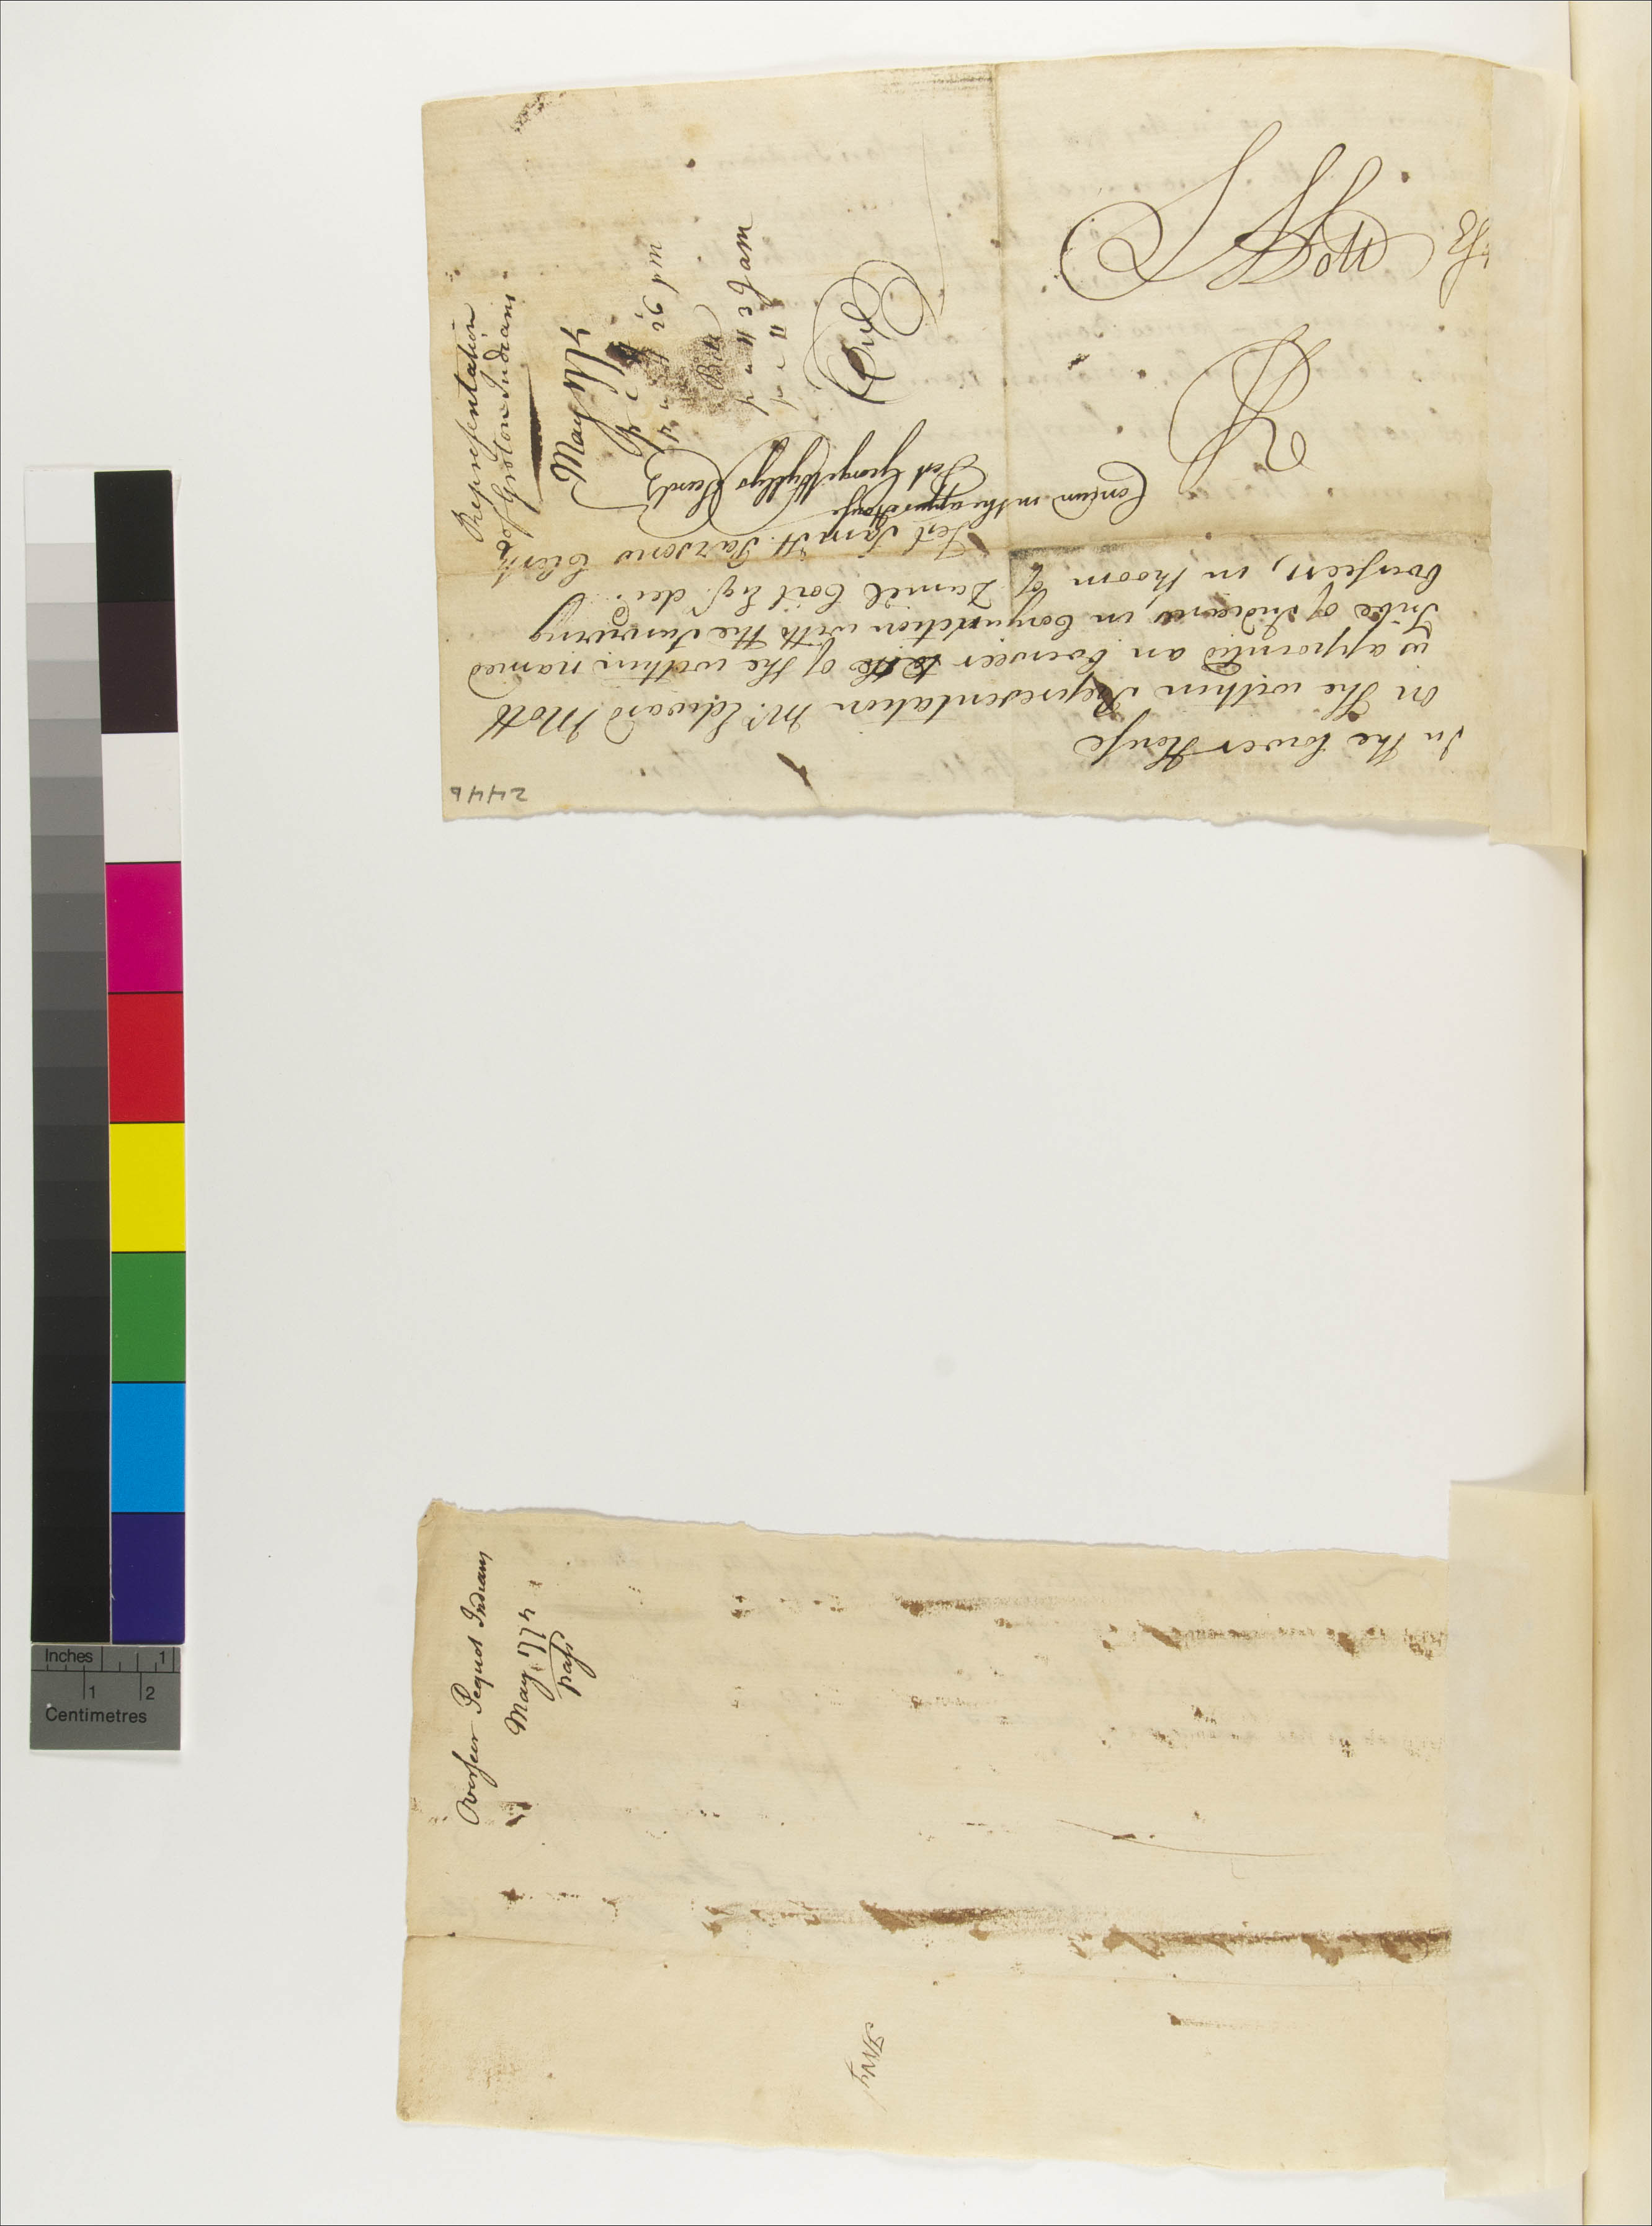 244b
In the Lower House
On the within Representation Mr. Edward Mott
is appointed an Overseer to the of the within named
Tribe of Indians, in Conjunction with the Surviving
Overseers, in Room of Daniel Coit Esqr. decd.
Test Samll H. Parsons Clerk
Concurred in the upper House
Test George Wyllys Secretr
Representation
of Groton Indians
May 1775
Mott
Overseer Pequot Indians
May 1775
pass
Inches
1
1
2
Centimetres